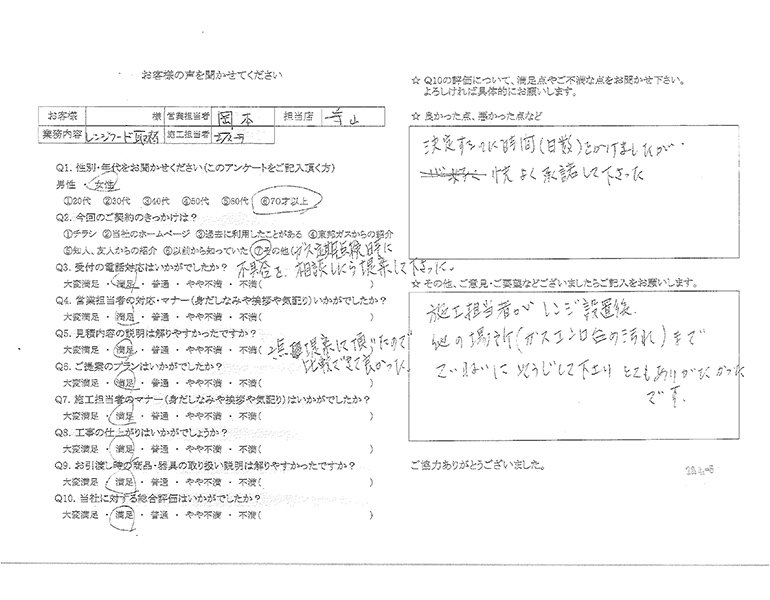 お客様の声を聞かせてください
お客様 様 営業担当者 岡本 担当店 寺山
業務内容 レンジフード取替 施工担当者
Q1. 性別・年代をお聞かせください(このアンケートをご記入頂く方)
男性 ・ 女性
①20代 ②30代 ③40代 ④50代 ⑤60代 ⑥70才以上
Q2. 今回のご契約のきっかけは？
①チラシ ②当社のホームページ ③過去に利用したことがある ④東邦ガスからの紹介
⑤知人、友人からの紹介 ⑥以前から知っていた ⑦その他(ガス定期点検時に
不具合を相談したら提案して下さった。
Q3. 受付の電話対応はいかがでしたか？
大変満足 ・ 満足 ・ 普通 ・ やや不満 ・ 不満( )
Q4. 営業担当者の対応・マナー(身だしなみや挨拶や気配り)いかがでしたか？
大変満足 ・ 満足 ・ 普通 ・ やや不満 ・ 不満( )
Q5. 見積内容の説明は解りやすかったですか？
大変満足 ・ 満足 ・ 普通 ・ やや不満 ・ 不満( 2点 提案して頂けたので
比較できて良かった。
Q6. ご提案のプランはいかがでしたか？
大変満足 ・ 満足 ・ 普通 ・ やや不満 ・ 不満( )
Q7. 施工担当者のマナー(身だしなみや挨拶や気配り)はいかがでしたか？
大変満足 ・ 満足 ・ 普通 ・ やや不満 ・ 不満( )
Q8. 工事の仕上がりはいかがでしょうか？
大変満足 ・ 満足 ・ 普通 ・ やや不満 ・ 不満( )
Q9. お引渡し時の商品・器具の取り扱い説明は解りやすかったですか？
大変満足 ・ 満足 ・ 普通 ・ やや不満 ・ 不満( )
Q10. 当社に対する総合評価はいかがでしたか？
大変満足 ・ 満足 ・ 普通 ・ やや不満 ・ 不満( )
☆ Q10の評価について、満足点やご不満な点をお聞かせ下さい。
よろしければ具体的にお願いします。
☆ 良かった点、悪かった点など
決定するのに時間(日数)をかけましたが・
快よく承諾して下さった
☆ その他、ご意見・ご要望などございましたらご記入をお願いします。
施工担当者がレンジ設置後、
他の場所(ガスコンロ台の汚れ)まで
ていねいにそうじして下さり とてもありがたかった
です。
ご協力ありがとうございました。